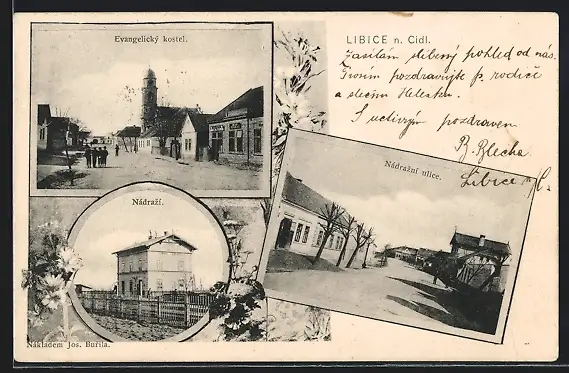 Evangelický kostel.
LIBICE n. Cidl.
Zasílám slíbený pohled od nás.
Prosím pozdravujte p. rodiče
a slečnu Helenku.
S uctivým pozdravem
B. Blecha.
Libice n/C.
Nádražní ulice.
Nádraží.
Nákladem Jos. Buřila.